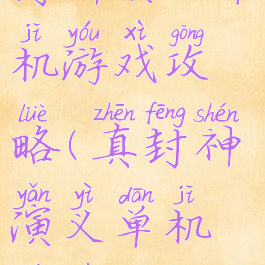 jī yóu xì gōng
机游戏攻
lüè zhēn fēng shén
略(真封神
yǎn yì dān jī
演义单机